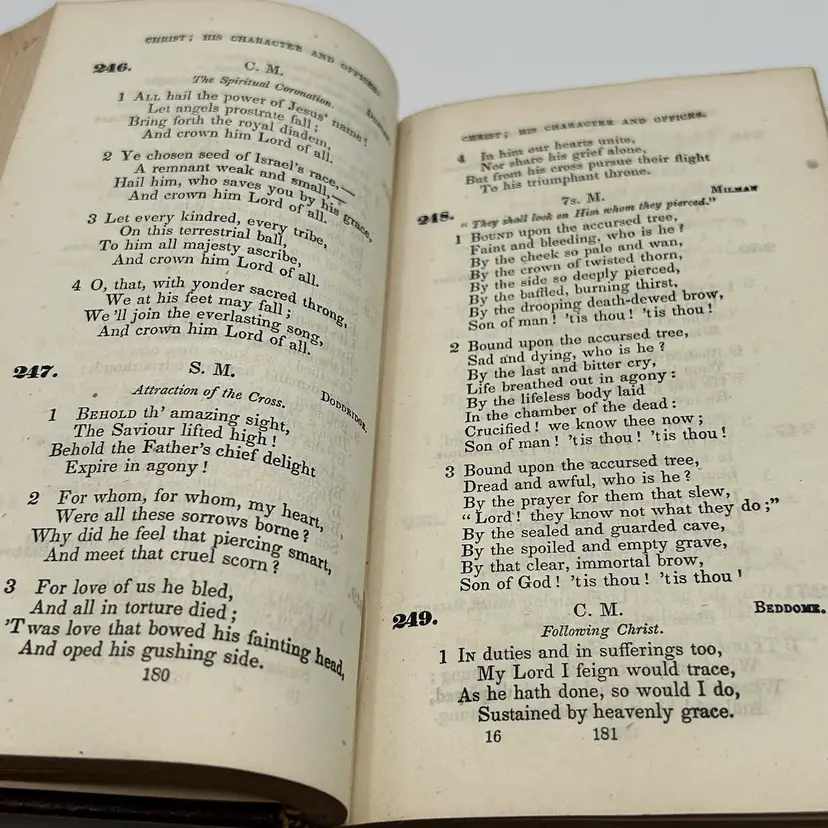 CHRIST; HIS CHARACTER AND OFFICES.
246. C. M.
The Spiritual Coronation. DUNCAN
1 ALL hail the power of Jesus' name!
Let angels prostrate fall;
Bring forth the royal diadem,
And crown him Lord of all.
2 Ye chosen seed of Israel's race,—
A remnant weak and small,—
Hail him, who saves you by his grace,
And crown him Lord of all.
3 Let every kindred, every tribe,
On this terrestrial ball,
To him all majesty ascribe,
And crown him Lord of all.
4 O, that, with yonder sacred throng,
We at his feet may fall;
We'll join the everlasting song,
And crown him Lord of all.
247. S. M.
Attraction of the Cross. DODDRIDGE.
1 BEHOLD th' amazing sight,
The Saviour lifted high!
Behold the Father's chief delight
Expire in agony!
2 For whom, for whom, my heart,
Were all these sorrows borne?
Why did he feel that piercing smart,
And meet that cruel scorn?
3 For love of us he bled,
And all in torture died;
'Twas love that bowed his fainting head,
And oped his gushing side.
180
CHRIST; HIS CHARACTER AND OFFICES.
4 In him our hearts unite,
Nor share his grief alone,
But from his cross pursue their flight
To his triumphant throne.
248. 7s. M. MILMAN
"They shall look on Him whom they pierced."
1 BOUND upon the accursed tree,
Faint and bleeding, who is he?
By the cheek so pale and wan,
By the crown of twisted thorn,
By the side so deeply pierced,
By the baffled, burning thirst,
By the drooping death-dewed brow,
Son of man! 'tis thou! 'tis thou!
2 Bound upon the accursed tree,
Sad and dying, who is he?
By the last and bitter cry,
Life breathed out in agony:
By the lifeless body laid
In the chamber of the dead:
Crucified! we know thee now;
Son of man! 'tis thou! 'tis thou!
3 Bound upon the accursed tree,
Dread and awful, who is he?
By the prayer for them that slew,
"Lord! they know not what they do;"
By the sealed and guarded cave,
By the spoiled and empty grave,
By that clear, immortal brow,
Son of God! 'tis thou! 'tis thou!
249. C. M. BEDDOME.
Following Christ.
1 IN duties and in sufferings too,
My Lord I feign would trace,
As he hath done, so would I do,
Sustained by heavenly grace.
16 181